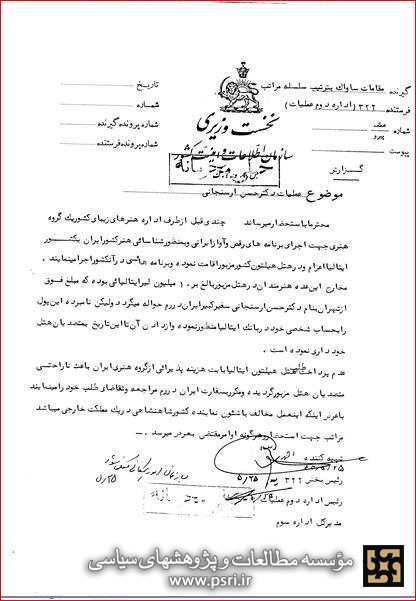 گیرنده مقامات ساواک بترتیب سلسله مراتب
فرستنده ۳۲۲ (اداره دوم عملیات)
شماره
پیرو
پیوست
گزارش
تاریخ
شماره
شماره پرونده گیرنده
شماره پرونده فرستنده
نخست وزیری
سازمان اطلاعات و امنیت کشور
موضوع عملیات دکتر حسن ارسنجانی
محترما باستحضار میرساند چندی قبل از طرف اداره هنرهای زیبای کشور یک گروه
هنری جهت اجرای برنامه های رقص و آواز ایرانی و بمنظور شناسائی هنر کشور ایران بکشور
ایتالیا اعزام و در هتل هیلتون کشور مزبور اقامت نموده و برنامه هائی در آنکشور اجرا مینمایند.
مخارج این عده هنرمندان در هتل مزبور بالغ بر ۱۰ میلیون لیر ایتالیائی بوده که مبلغ فوق
از تهران بنام دکتر حسن ارسنجانی سفیر کبیر ایران در رم حواله میگردد ولیکن نامبرده این پول
را بحساب شخصی خود در بانک ایتالیا منظور نموده و از دادن آن تا این تاریخ بمتصدیان هتل
خودداری نموده است.
عدم پرداخت طلب هتل هیلتون ایتالیا بابت هزینه پذیرائی از گروه هنری ایران باعث ناراحتی
متصدیان هتل مزبور گردیده و مکرر بسفارت ایران در رم مراجعه و تقاضای طلب خود را مینمایند
با عرض اینکه اینعمل مخالف با شئون نماینده کشور شاهنشاهی در یک مملکت خارجی میباشد
مراتب جهت استحضار و هرگونه اوامر مقتضی بعرض میرسد.
تهیه کننده
رئیس بخش ۳۲۲ ۵/۲۵
رئیس اداره دوم عملیات
مدیرکل اداره سوم
مؤسسه مطالعات و پژوهشهای سیاسی
www.psri.ir